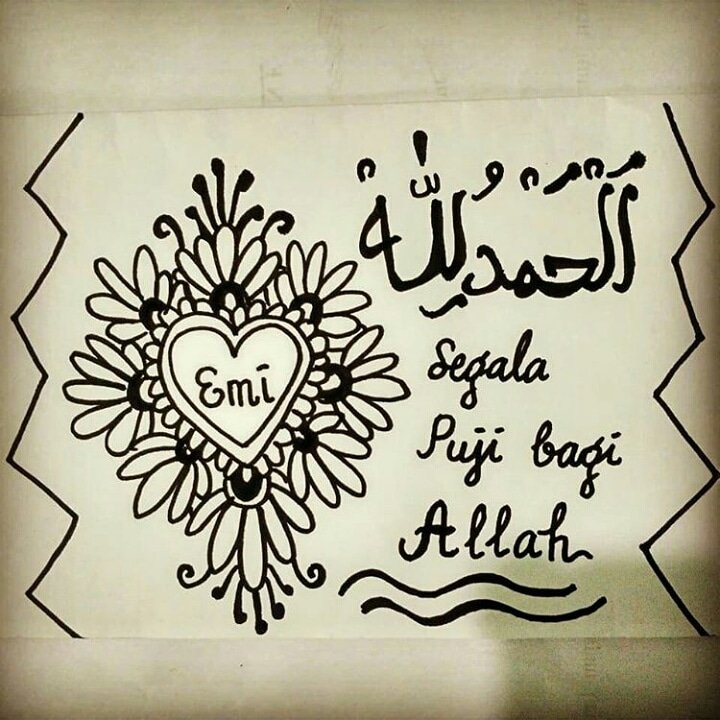 Emi
الْحَمْدُ لِلّٰهِ
Segala
Puji bagi
Allah